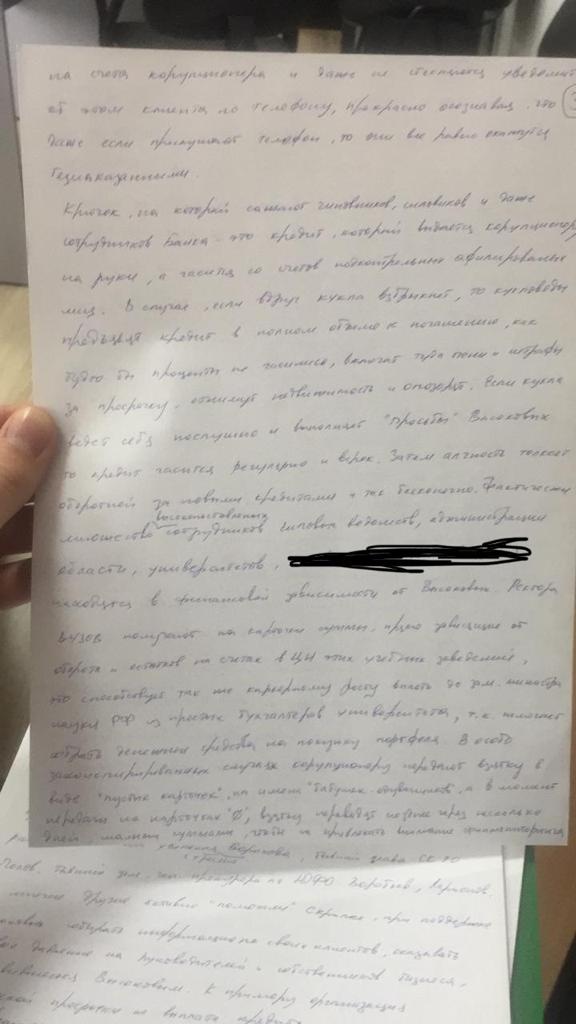 на счета корупционера и даже не стесняются уведомит
об этом клиента по телефону, прекрасно осознавая, что
3
даже если прослушают телефон, то они все равно окажутся
безнаказанными.
Крючок, на который сажают чиновников, силовиков и даже
сотрудников Банка - это кредит, который выдается корупционеру
на руки, а гасится со счетов подконтрольных афилированых
лиц. В случае, если вдруг кукла взбрыкнет, то кукловоды
предъявят кредит в полном объеме к погашению, как
будто бы проценты не гасились, включат туда пени и штрафы
за просрочку, отнимут недвижимость и опозорят. Если кукла
ведет себя послушно и выполняет "просьбы" Высоковых
то кредит гасится регулярно и в срок. Затем алчность толкает
за новыми кредитами и так бесконечно. Фактически
высокопоставленных
множество сотрудников силовых ведомств, администрации
области, университетов,
находятся в финансовой зависимости от Высоковых. Ректора
ВУЗов получают на карточки суммы, прямо зависящие от
оборота и остатков на счетах в ЦИ этих учебных заведений,
это способствует так же карьерному росту вплоть до зам. министра
науки РФ из простых бухгалтеров университета, т.к. помогает
собрать денежные средства на покупку портфеля. В особо
законспирированных случаях корупционеру передают взятку в
виде "пустых карточек", на имена а в момент
передачи на карточках "0", взятку переводят позже через несколько
дней малыми суммами, чтобы не привлекать внимание
Борисова, бывший глава СК РО
Попов, бывший зам. ген. прокурора по ЮФО Воробьев,
и многие другие активно "помогали" при поддержке
собирать информацию на своих клиентов, оказывать
давление на руководителей и собственников бизнеса,
Высоковым. К примеру организация
просрочки по выплате кредита